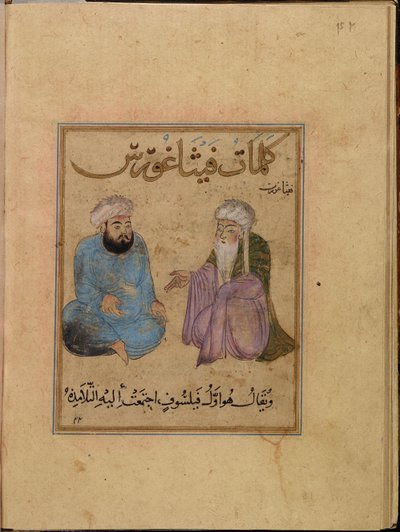 كلمات فيثاغورس
فيثاغورس
ويُقالُ هو اوّل فيلسُوفٍ اجتمعَتْ إليه التّلامذه